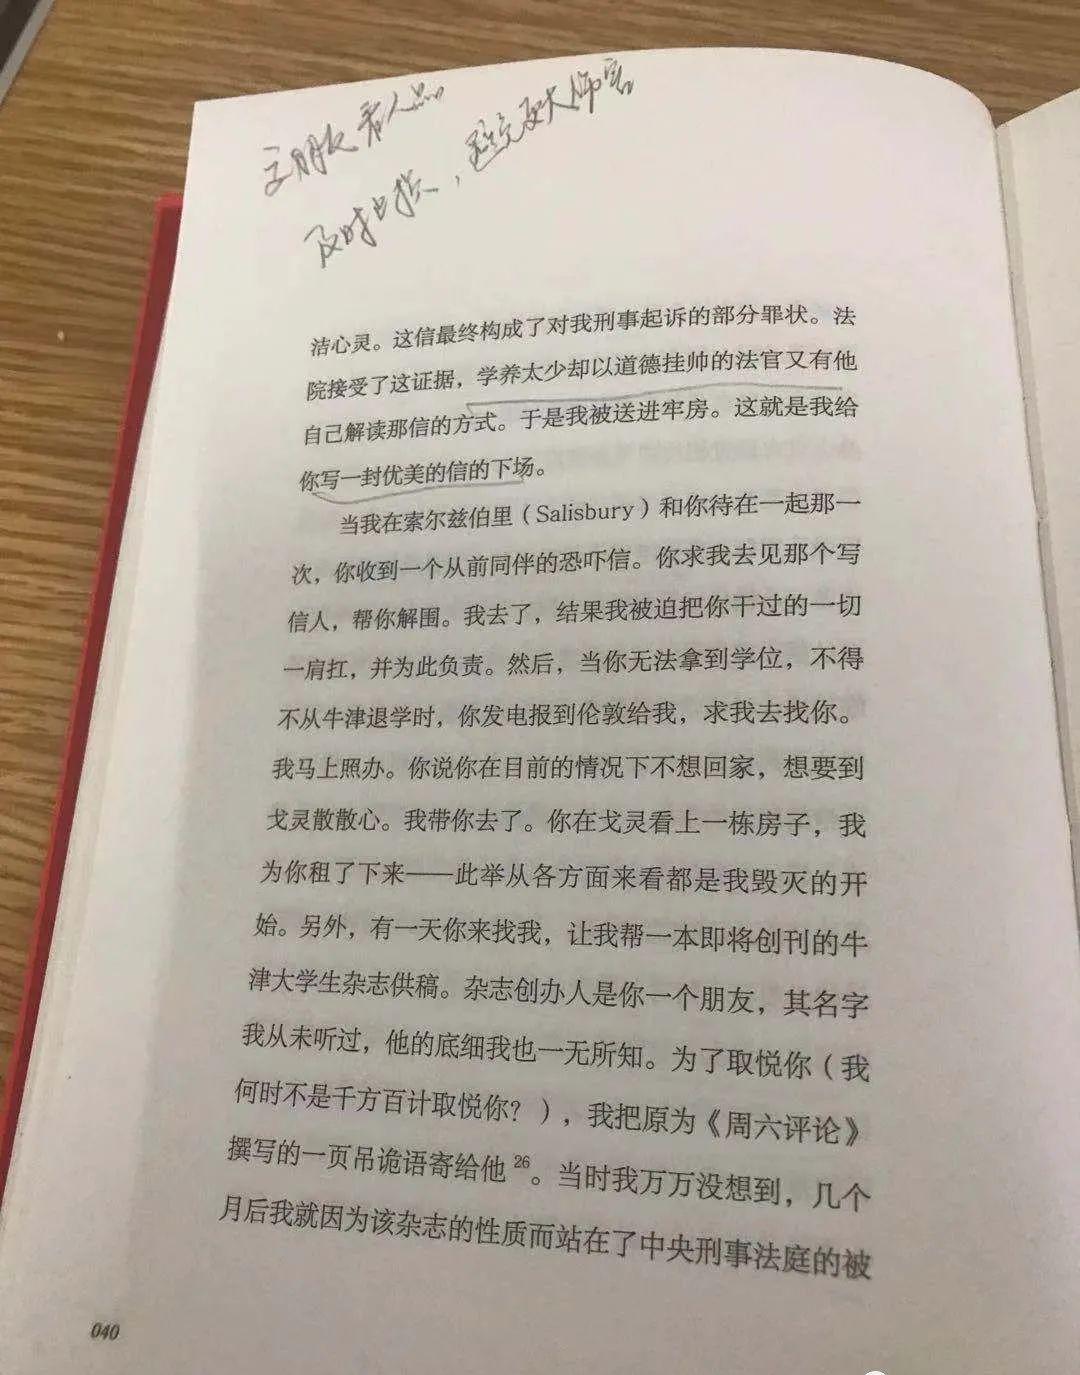 交朋友看人品
及时止损，避免更大伤害
洁心灵。这信最终构成了对我刑事起诉的部分罪状。法
院接受了这证据，学养太少却以道德挂帅的法官又有他
自己解读那信的方式。于是我被送进牢房。这就是我给
你写一封优美的信的下场。
当我在索尔兹伯里（Salisbury）和你待在一起那一
次，你收到一个从前同伴的恐吓信。你求我去见那个写
信人，帮你解围。我去了，结果我被迫把你干过的一切
一肩扛，并为此负责。然后，当你无法拿到学位，不得
不从牛津退学时，你发电报到伦敦给我，求我去找你。
我马上照办。你说你在目前的情况下不想回家，想要到
戈灵散散心。我带你去了。你在戈灵看上一栋房子，我
为你租了下来——此举从各方面来看都是我毁灭的开
始。另外，有一天你来找我，让我帮一本即将创刊的牛
津大学生杂志供稿。杂志创办人是你一个朋友，其名字
我从未听过，他的底细我也一无所知。为了取悦你（我
何时不是千方百计取悦你？），我把原为《周六评论》
撰写的一页吊诡语寄给他26。当时我万万没想到，几个
月后我就因为该杂志的性质而站在了中央刑事法庭的被
040